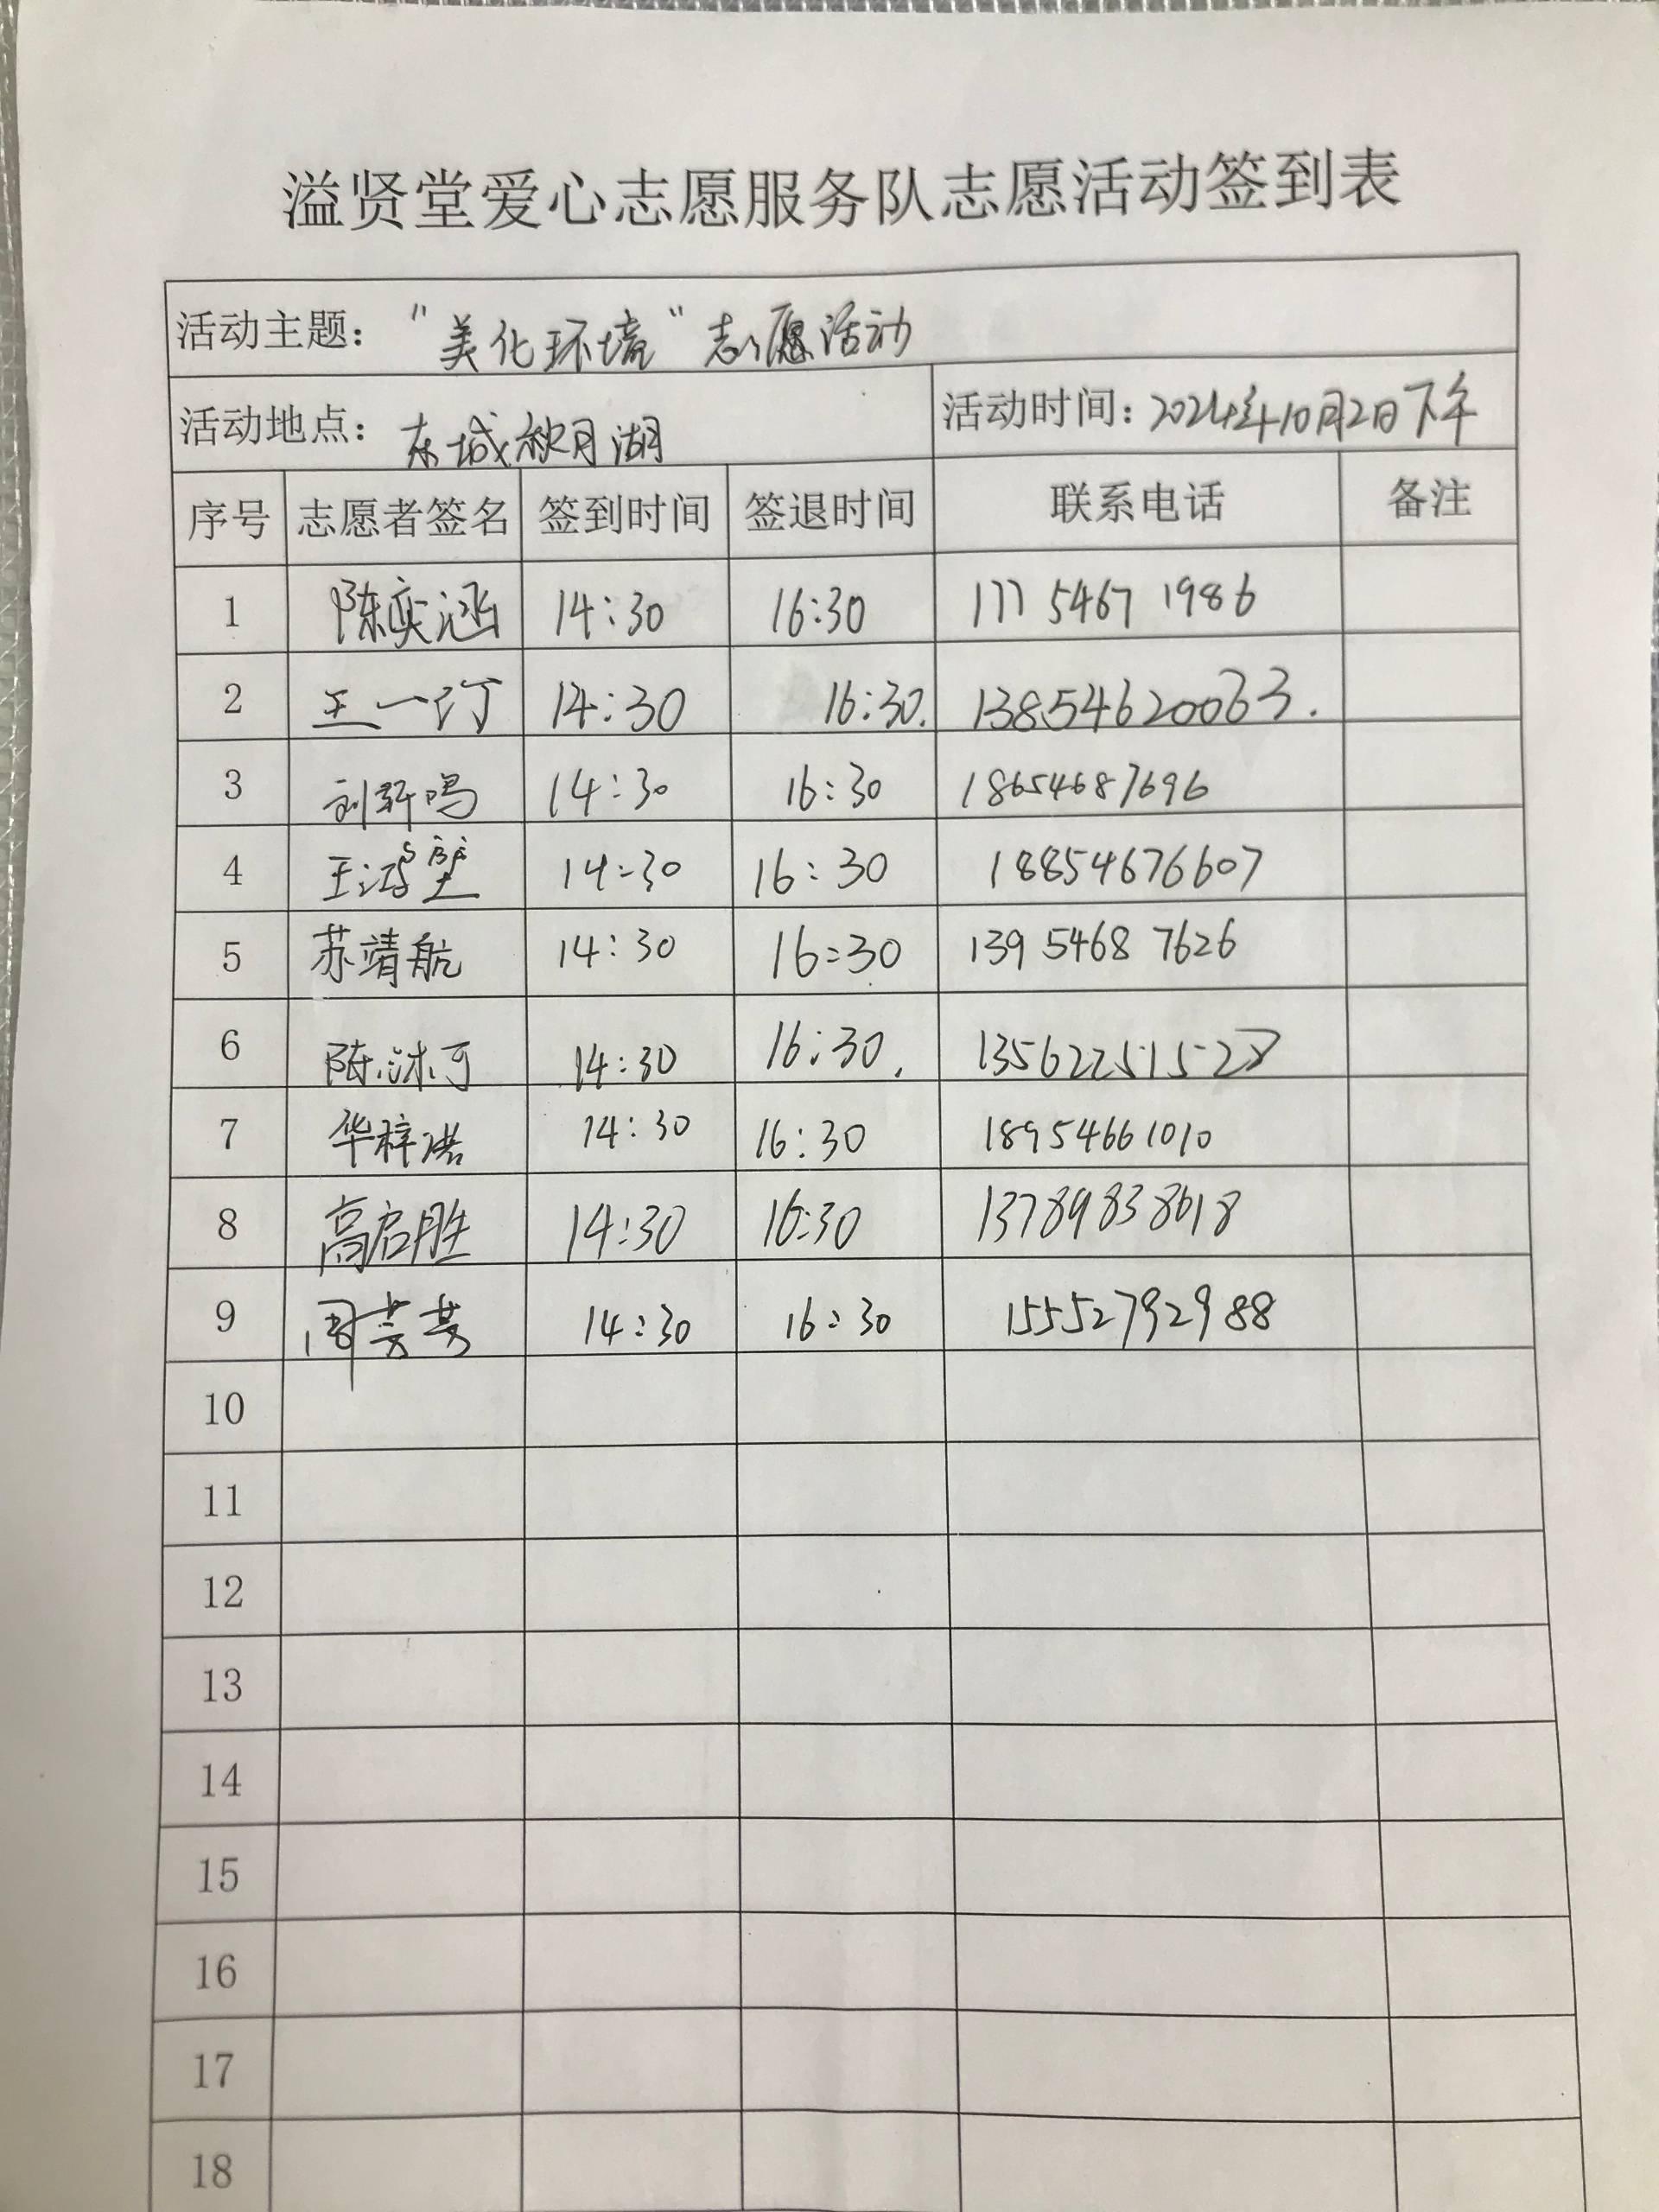 溢贤堂爱心志愿服务队志愿活动签到表
活动主题："美化环境"志愿活动
活动地点：东城秋月湖 活动时间：2024年10月2日下午
序号 志愿者签名 签到时间 签退时间 联系电话 备注
1 陈奕涵 14:30 16:30 177 5467 1986
2 王一汀 14:30 16:30. 13854620063.
3 14:30 16:30 18654687696
4 14:30 16:30 18854676607
5 苏靖航 14:30 16:30 139 5468 7626
6 陈沐可 14:30 16:30. 
7 华梓洪 14:30 16:30 18954661010
8 高启胜 14:30 16:30 13789838618
9 周芸芸 14:30 16:30 15552792988
10
11
12
13
14
15
16
17
18